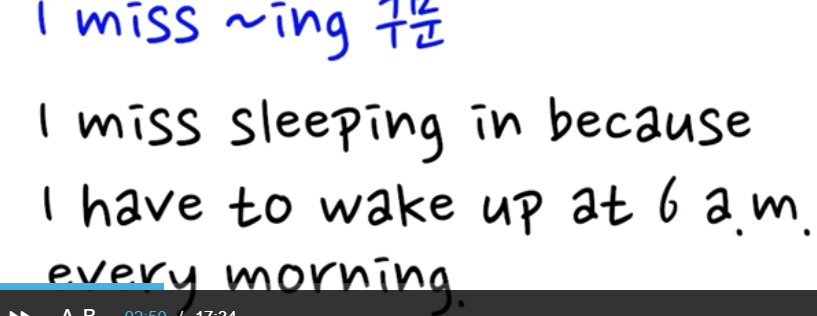 I miss ~ing 구문
I miss sleeping in because
I have to wake up at 6 a.m.
every morning.
A B 02:50 / 17:34